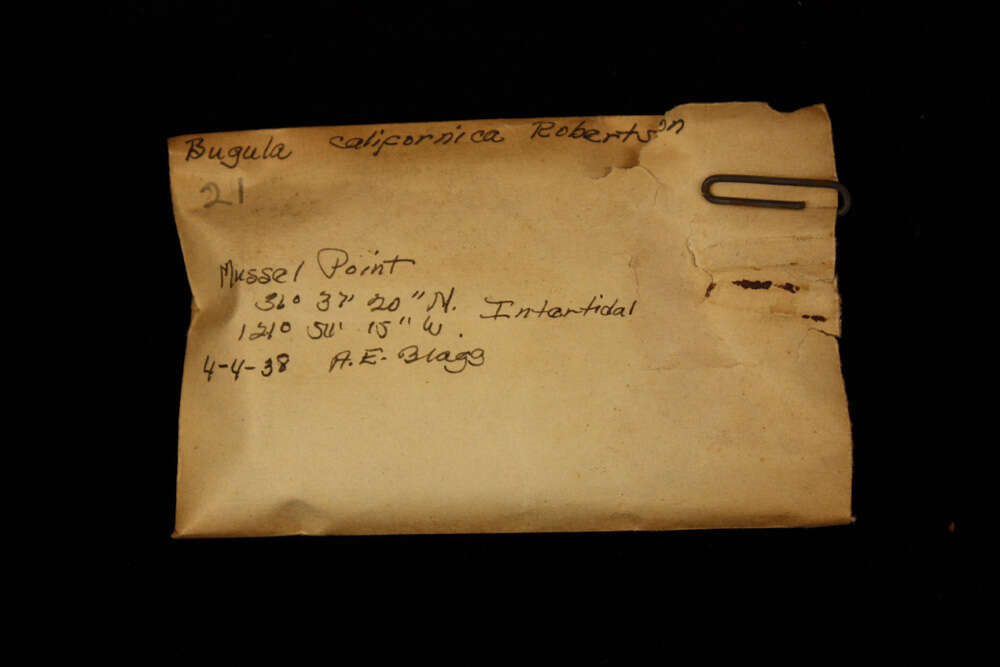 Bugula californica Robertson
21
Mussel Point
36° 37' 20" N. Intertidal
121° 54' 15" W.
4-4-38 A.E. Blagg